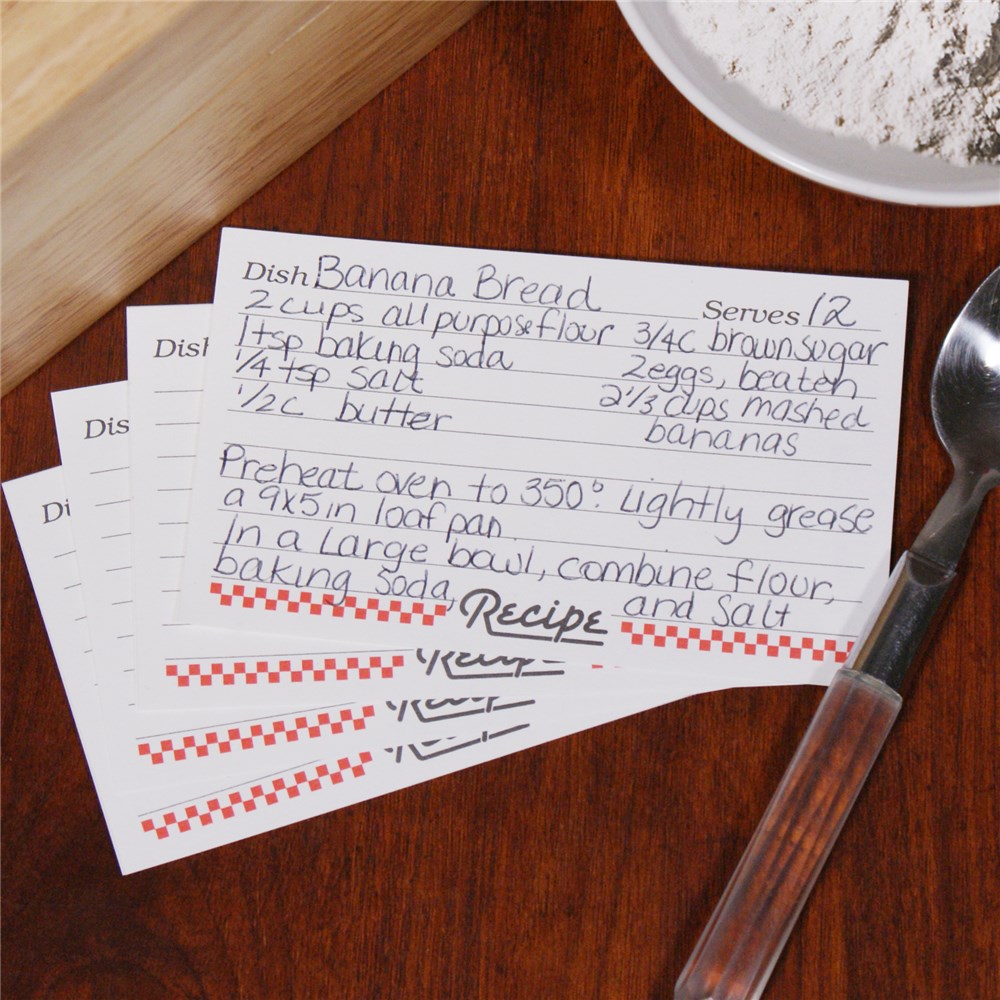 Dish Banana Bread Serves 12
2 cups all purpose flour 3/4c brown sugar
1 tsp baking soda 2 eggs, beaten
1/4 tsp salt 2 1/3 cups mashed
1/2c butter bananas
Preheat oven to 350° Lightly grease
a 9x5 in loaf pan.
In a Large bowl, combine flour,
baking soda, and Salt
Recipe
Dish
Dis
Di
Recipe
Recipe
Recipe